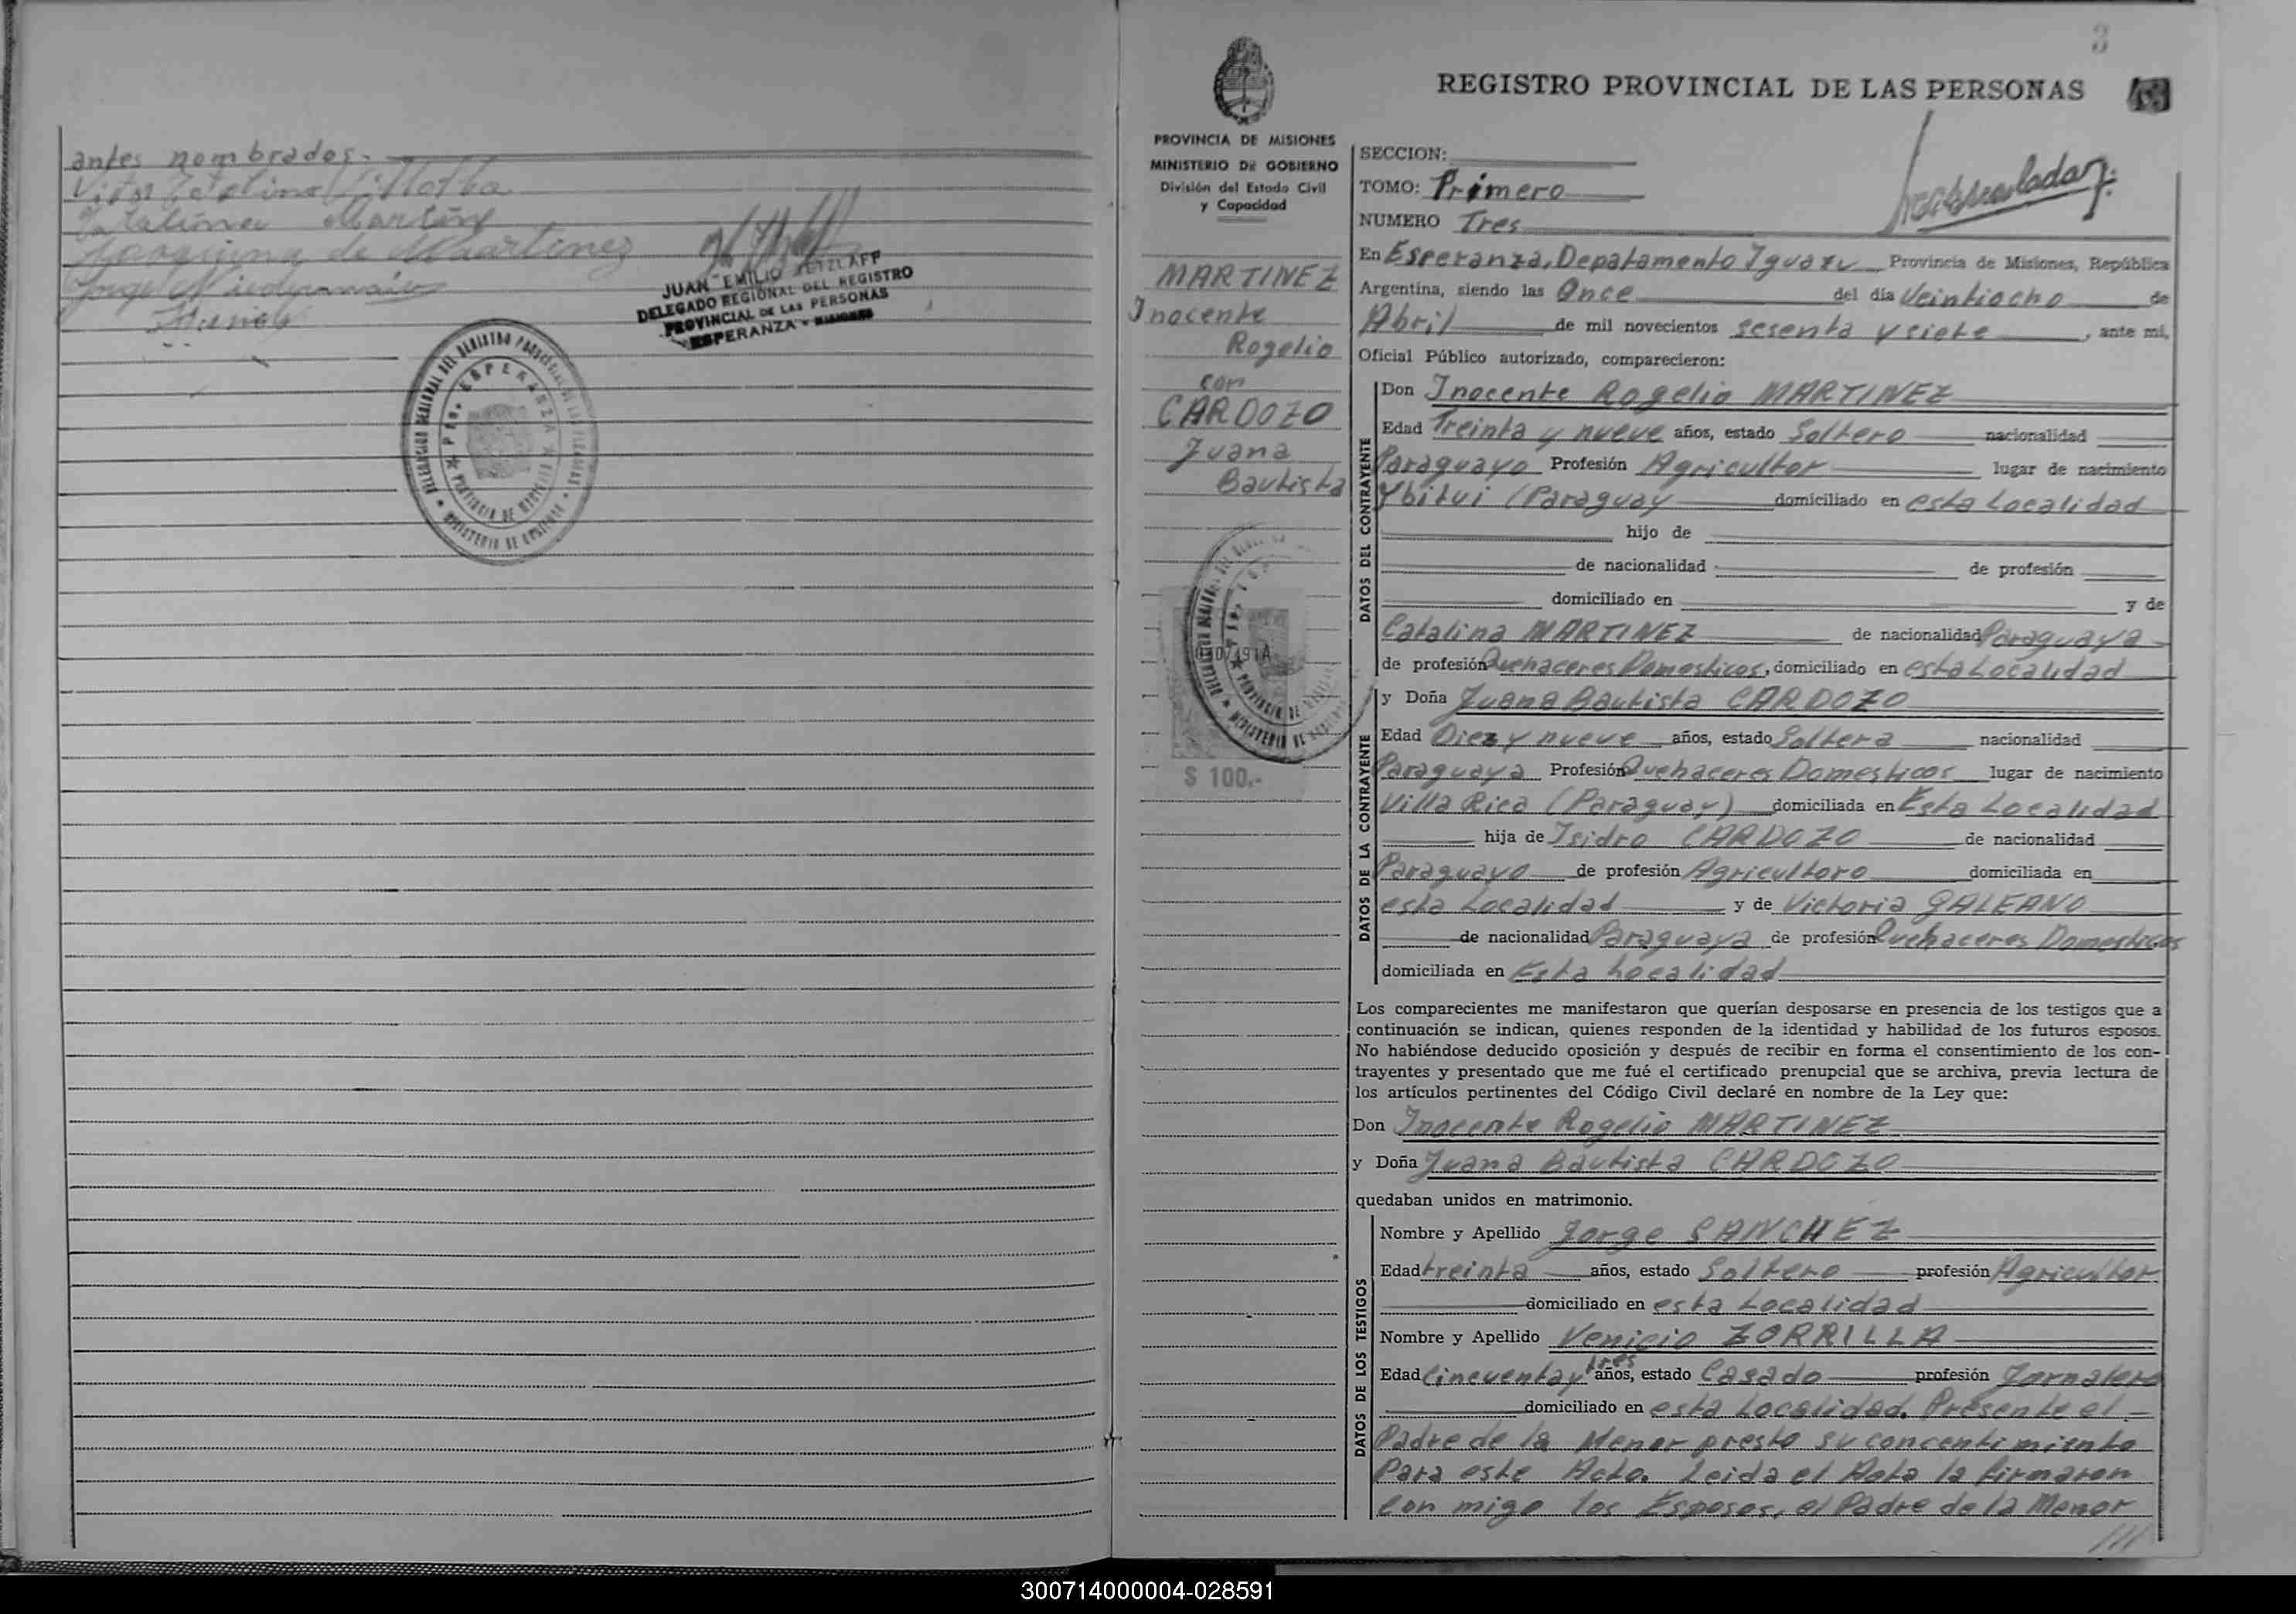 antes nombrados.
Catalina Martinez
Joaquina de Maartinez
JUAN EMILIO
DELEGADO REGIONAL DEL REGISTRO
PROVINCIAL DE LAS PERSONAS
ESPERANZA - MISIONES
3
REGISTRO PROVINCIAL DE LAS PERSONAS
PROVINCIA DE MISIONES
MINISTERIO DE GOBIERNO
División del Estado Civil
y Capacidad
MARTINEZ
Inocente
Rogelio
con
CARDOZO
Juana
Bautista
$ 100.-
SECCION:
TOMO: Primero
NUMERO Tres
En Esperanza, Depatamento Iguazu Provincia de Misiones, República
Argentina, siendo las Once del día Veintiocho de
Abril de mil novecientos sesenta y siete, ante mí,
Oficial Público autorizado, comparecieron:
DATOS DEL CONTRAYENTE
Don Inocente Rogelio MARTINEZ
Edad Treinta y nueve años, estado Soltero nacionalidad
Paraguayo Profesión Agricultor lugar de nacimiento
Ybitui (Paraguay domiciliado en esta Localidad
hijo de
de nacionalidad de profesión
domiciliado en y de
Catalina MARTINEZ de nacionalidad Paraguaya
de profesión Quehaceres Domesticos, domiciliado en esta Localidad
DATOS DE LA CONTRAYENTE
y Doña Juana Bautista CARDOZO
Edad Diez y nueve años, estado Soltera nacionalidad
Paraguaya Profesión Quehaceres Domesticos lugar de nacimiento
Villa Rica (Paraguay) domiciliada en Esta Localidad
hija de Isidro CARDOZO de nacionalidad
Paraguayo de profesión Agricultoro domiciliada en
esta Localidad y de Victoria GALEANO
de nacionalidad Paraguaya de profesión Quehaceres Domesticos
domiciliada en Esta Localidad
Los comparecientes me manifestaron que querían desposarse en presencia de los testigos que a
continuación se indican, quienes responden de la identidad y habilidad de los futuros esposos.
No habiéndose deducido oposición y después de recibir en forma el consentimiento de los con-
trayentes y presentado que me fué el certificado prenupcial que se archiva, previa lectura de
los artículos pertinentes del Código Civil declaré en nombre de la Ley que:
Don Inocente Rogelio MARTINEZ
y Doña Juana Bautista CARDOZO
quedaban unidos en matrimonio.
DATOS DE LOS TESTIGOS
Nombre y Apellido Jorge SANCHEZ
Edad treinta años, estado Soltero profesión Agricultor
domiciliado en esta Localidad
Nombre y Apellido Venicio ZORRILLA
Edad Cincuenta y tres años, estado Casado profesión Jornalero
domiciliado en esta Localidad. Presente el -
Padre de la Menor presto su concentimiento
Para este Acto. Leida el Acta la firmaron
con migo los Esposos, el Padre de la Menor
///
300714000004-028591